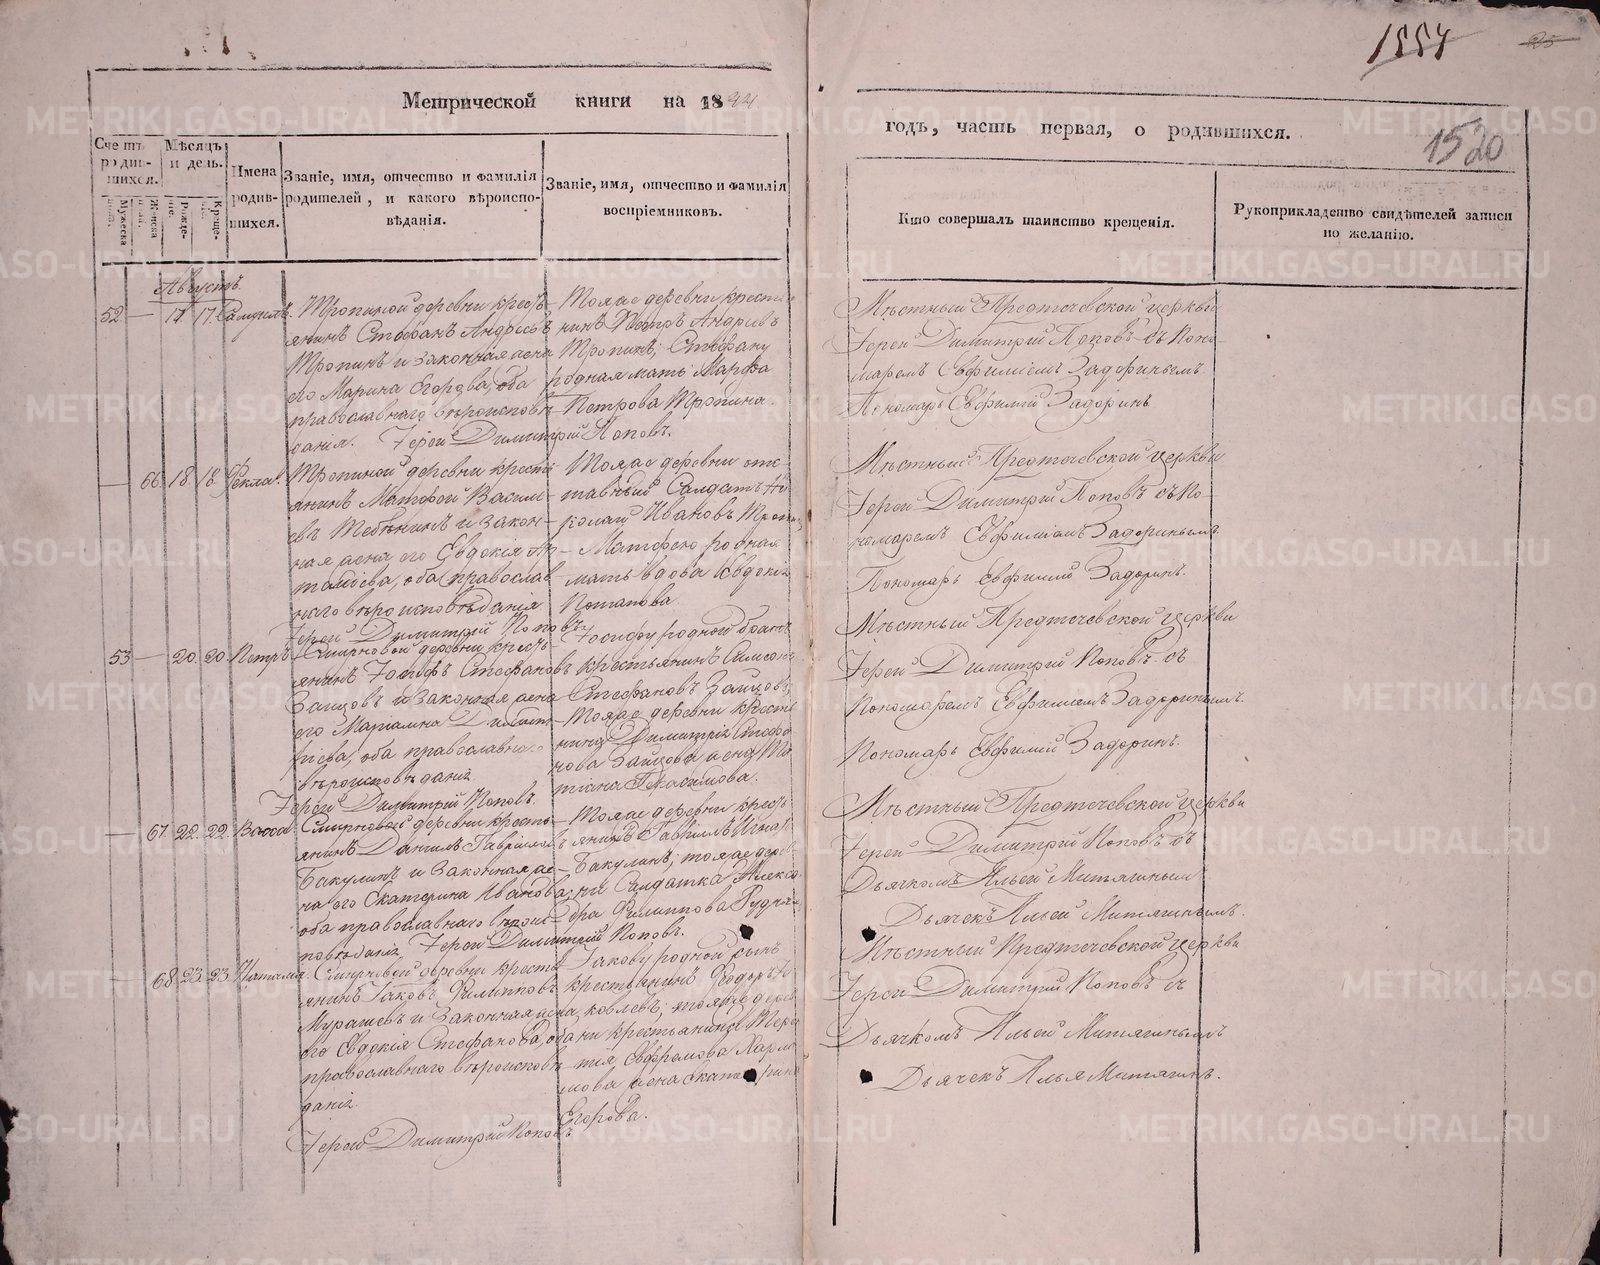 1554
25
Метрической книги на 1844
годъ, часть первая, о родившихся.
1520
Счетъ родившихся.
Мѣсяцъ и день.
Имена родившихся.
Званіе, имя, отчество и фамилія родителей, и какого вѣроисповѣданія.
Званіе, имя, отчество и фамилія воспріемниковъ.
Кто совершалъ таинство крещенія.
Рукоприкладство свидѣтелей записи по желанію.
Мужеска
Женска
Рожденіе.
Крещеніе.
Августъ.
52 — 17 17
Тропиной деревни крестъ
янинъ Стефанъ Андреевъ
Тропинъ и законная жена
его Марина Егорова, оба
православнаго вѣроисповѣ
данія. Іерей Димитрій Поповъ.
Тояже деревни крестья
нинъ Петръ Андреевъ
Тропинъ; Стефану
родная мать Марфа
Петрова Тропина.
Мѣстный Предтечевской церкви
Іерей Димитрій Поповъ съ Поно-
маремъ Евфиміемъ Задоринымъ.
Пономарь Евфимій Задоринъ
— 66 18 18 Фекла.
Тропиной деревни крестья
янинъ Василь
евъ и закон-
ная жена его Евдокія
оба православ
наго вѣроисповѣданія
Іерей Димитрій Поповъ
Тояже деревни отс
тавный Салдатъ Ни
колай Ивановъ
родная
мать вдова Евдокія
Потапова.
Мѣстный Предтечевской церкви
Іерей Димитрій Поповъ съ По-
номаремъ Евфиміемъ Задоринымъ.
Пономарь Евфимій Задоринъ.
53 — 20 20 Петръ
Смирновой деревни крестъ
янинъ Іосифъ Стефановъ
Зайцовъ и законная жена
его Маріамна
оба православнаго
вѣроисповѣданія.
Іерей Димитрій Поповъ.
Іосифу родной братъ
крестьянинъ Симеонъ
Стефановъ Зайцовъ,
Тояже деревни крестья
нина Димитрія Стефа
нова Зайцова жена Та
тіана Герасимова.
Мѣстный Предтечевской церкви
Іерей Димитрій Поповъ съ
Пономаремъ Евфиміемъ Задоринымъ.
Пономарь Евфимій Задоринъ.
— 67 22 22 Васса
Смирновой деревни кресть
янинъ Даніилъ Гавриловъ
Бакулинъ и законная же
на его Екатерина Иванова,
оба православнаго вѣроис
повѣданія, Іерей Димитрій Поповъ.
Тояже деревни кресть
янинъ Гавріилъ
Бакулинъ; тояже дерев
ни Салдатка Алексан
дра Филиппова
Мѣстный Предтечевской церкви
Іерей Димитрій Поповъ съ
Дьячкомъ Ильей Митягинымъ
Дьячекъ Ильей Митягинымъ.
— 68 23 23 Наталія.
Смирновой деревни кресть
янинъ Іаковъ Филипповъ
Мурашевъ и законная жена
его Евдокія Стефанова, оба
православнаго вѣроисповѣ
данія.
Іерей Димитрій Поповъ
Іакову родной сынъ
крестьянинъ Федоръ Іа
ковлевъ; тояже дерев
ни крестьянина Терен
тія Ефремова Харла
мова жена Екатерина
Егорова.
Мѣстный Предтечевской церкви
Іерей Димитрій Поповъ съ
Дьячкомъ Ильей Митягинымъ
Дьячекъ Илья Митягинъ.
METRIKI.GASO-URAL.RU